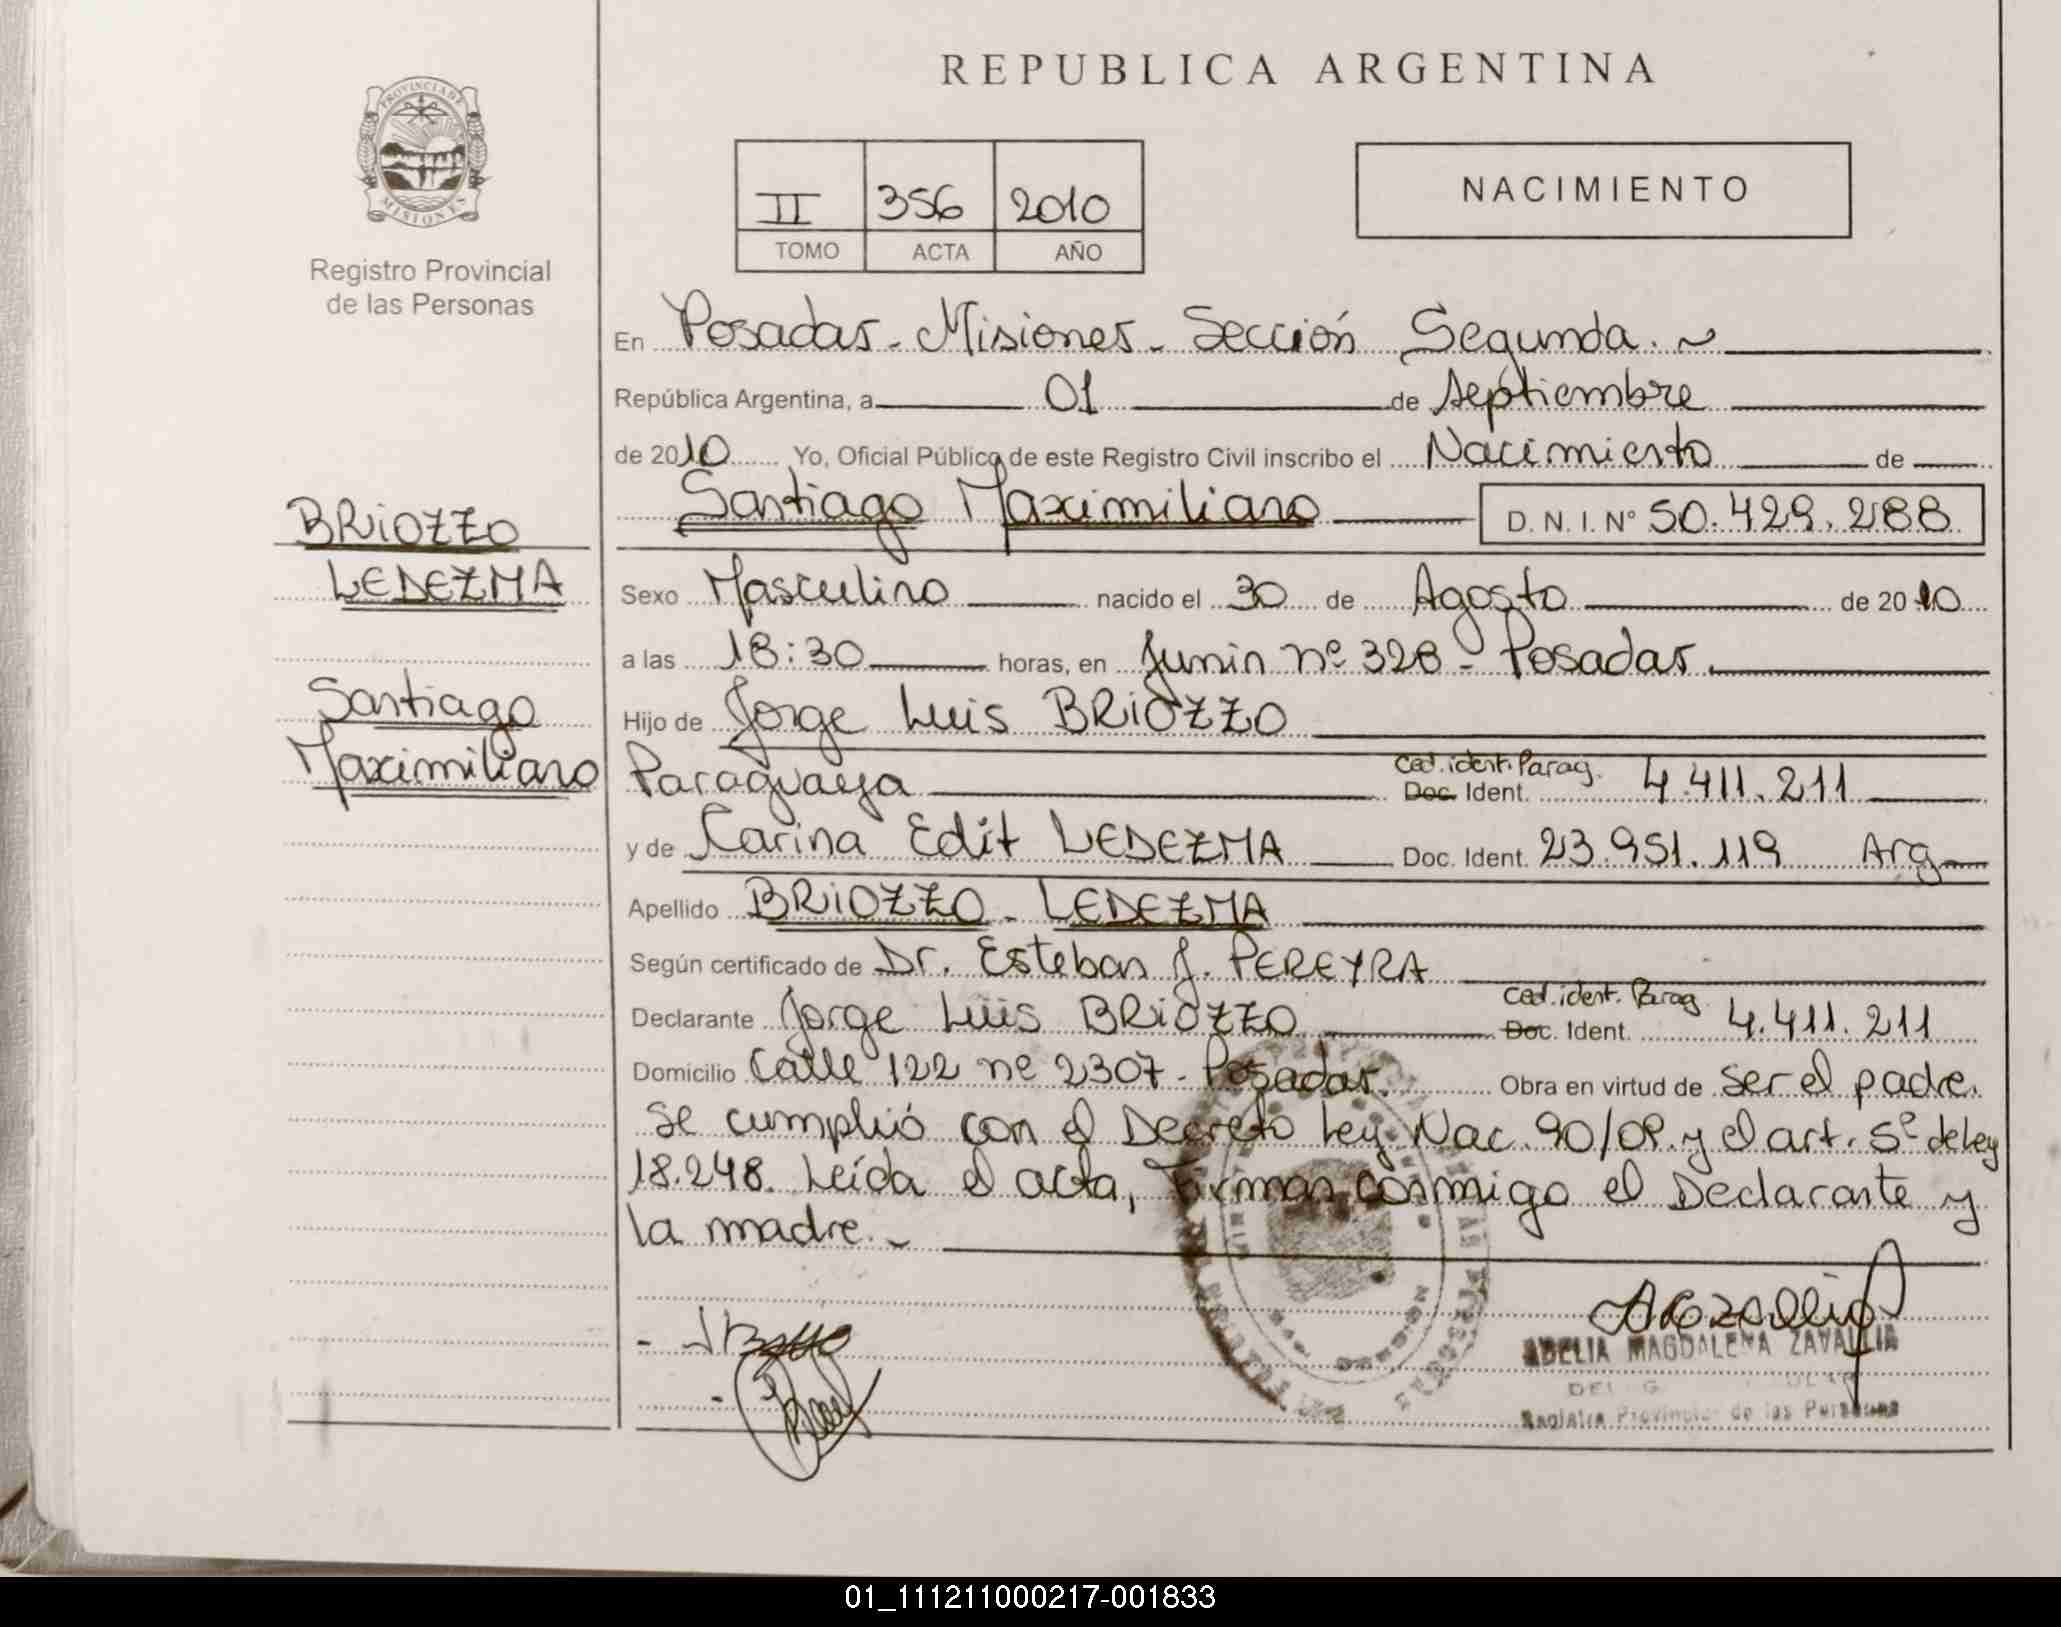 REPUBLICA ARGENTINA
PROVINCIA DE
MISIONES
Registro Provincial
de las Personas
II 356 2010
TOMO ACTA AÑO
NACIMIENTO
En Posadas - Misiones - Sección Segunda. ~
República Argentina, a 01 de Septiembre
de 2010 Yo, Oficial Público de este Registro Civil inscribo el Nacimiento de
Santiago Maximiliano D. N. I. Nº 50.429.288
BRIOZZO
LEDEZMA
Santiago
Maximiliano
Sexo Masculino nacido el 30 de Agosto de 2010
a las 18:30 horas, en Junin nº 328 - Posadas.
Hijo de Jorge Luis BRIOZZO
Paraguaya Ced. ident. Parag. Doc. Ident. 4.411.211
y de Carina Edit LEDEZMA Doc. Ident. 23.951.119 Arg
Apellido BRIOZZO - LEDEZMA
Según certificado de Dr. Esteban J. PEREYRA
Declarante Jorge Luis BRIOZZO Ced. ident. Parag. Doc. Ident. 4.411.211
Domicilio Calle 122 nº 2307 - Posadas. Obra en virtud de ser el padre.
Se cumplió con el Decreto Ley Nac. 90/09 y el art. 5º de ley
18.248. Leída el acta, Firman conmigo el Declarante y
la madre. ~
ADELIA MAGDALENA ZAVALLIA
Registro Provincial de las Personas
01_111211000217-001833